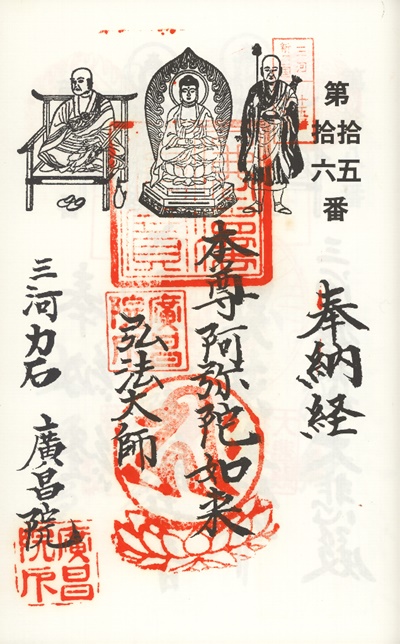 第拾五
拾六番
奉納経
本尊阿弥陀如来
弘法大師
三河力石
廣昌院
廣昌
院
廣昌
院印